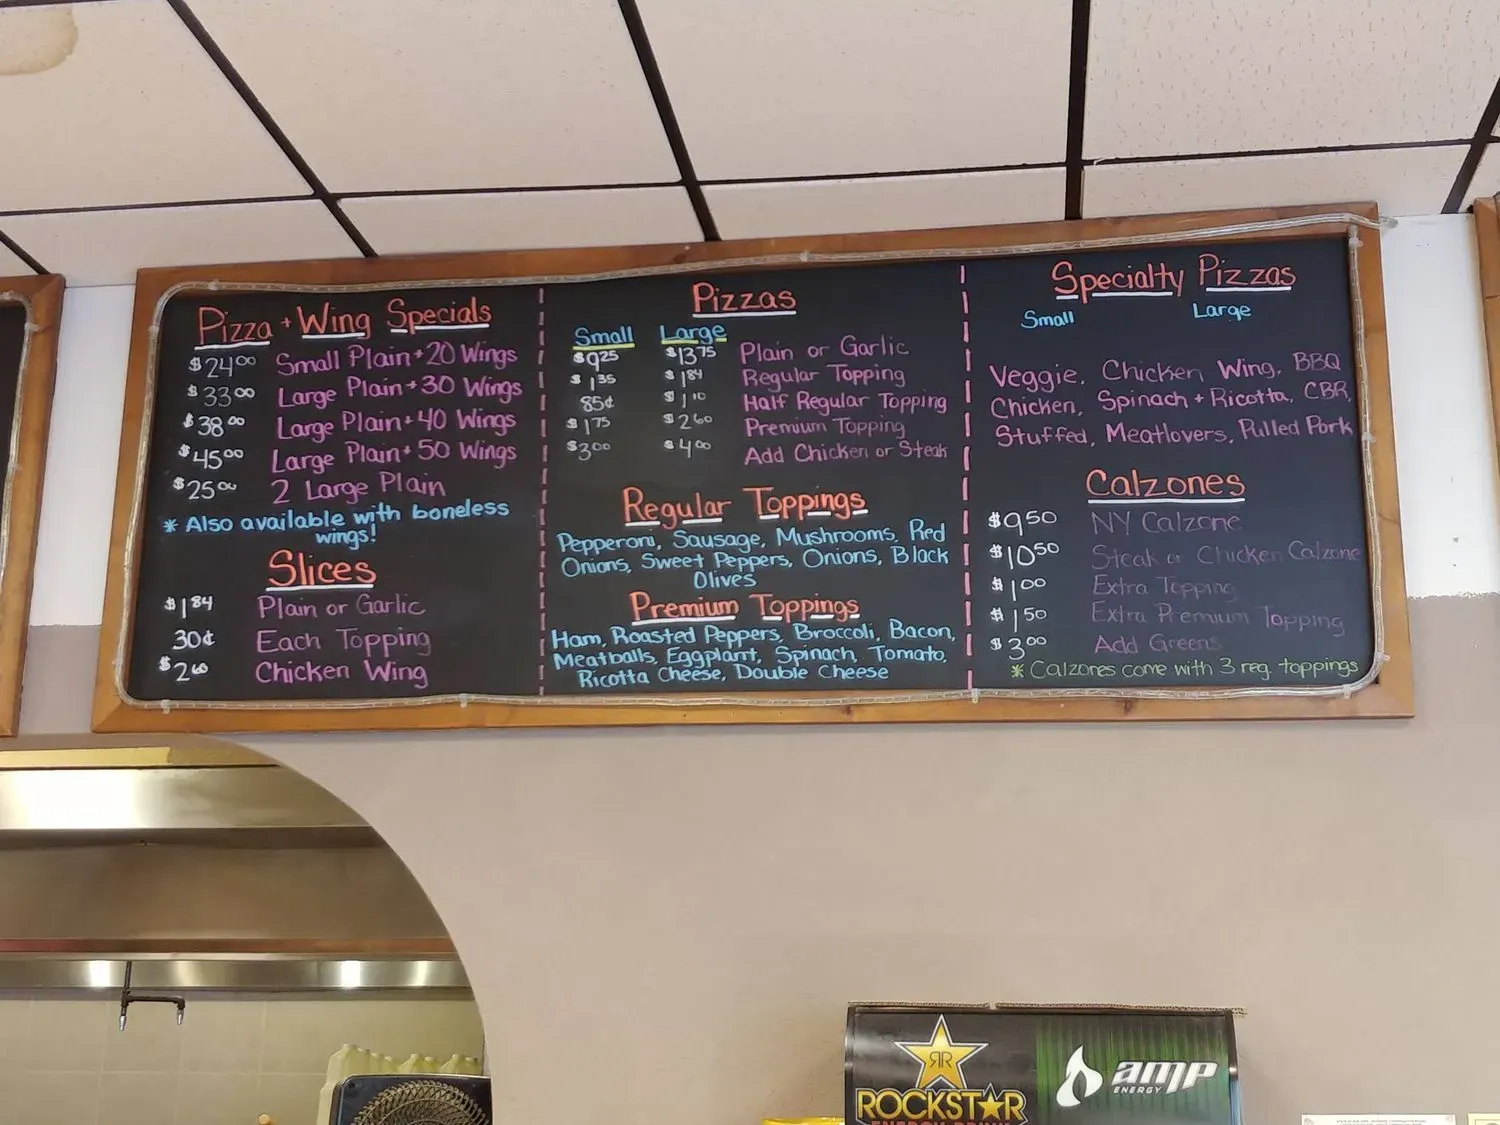 Pizza + Wing Specials
$24.00 Small Plain + 20 Wings
$33.00 Large Plain + 30 Wings
$38.00 Large Plain + 40 Wings
$45.00 Large Plain + 50 Wings
$25.00 2 Large Plain
* Also available with boneless
wings!
Slices
$1.84 Plain or Garlic
30¢ Each Topping
$2.60 Chicken Wing
Pizzas
Small Large
$9.25 $13.75 Plain or Garlic
$1.35 $1.84 Regular Topping
85¢ $1.10 Half Regular Topping
$1.75 $2.60 Premium Topping
$3.00 $4.00 Add Chicken or Steak
Regular Toppings
Pepperoni, Sausage, Mushrooms, Red
Onions, Sweet Peppers, Onions, Black
Olives
Premium Toppings
Ham, Roasted Peppers, Broccoli, Bacon,
Meatballs, Eggplant, Spinach, Tomato,
Ricotta Cheese, Double Cheese
Specialty Pizzas
Small Large
Veggie, Chicken Wing, BBQ
Chicken, Spinach + Ricotta, CBR,
Stuffed, Meatlovers, Pulled Pork
Calzones
$9.50 NY Calzone
$10.50 Steak or Chicken Calzone
$1.00 Extra Topping
$1.50 Extra Premium Topping
$3.00 Add Greens
* Calzones come with 3 reg. toppings
RR
ROCKSTAR
ENERGY DRINK
amp
ENERGY